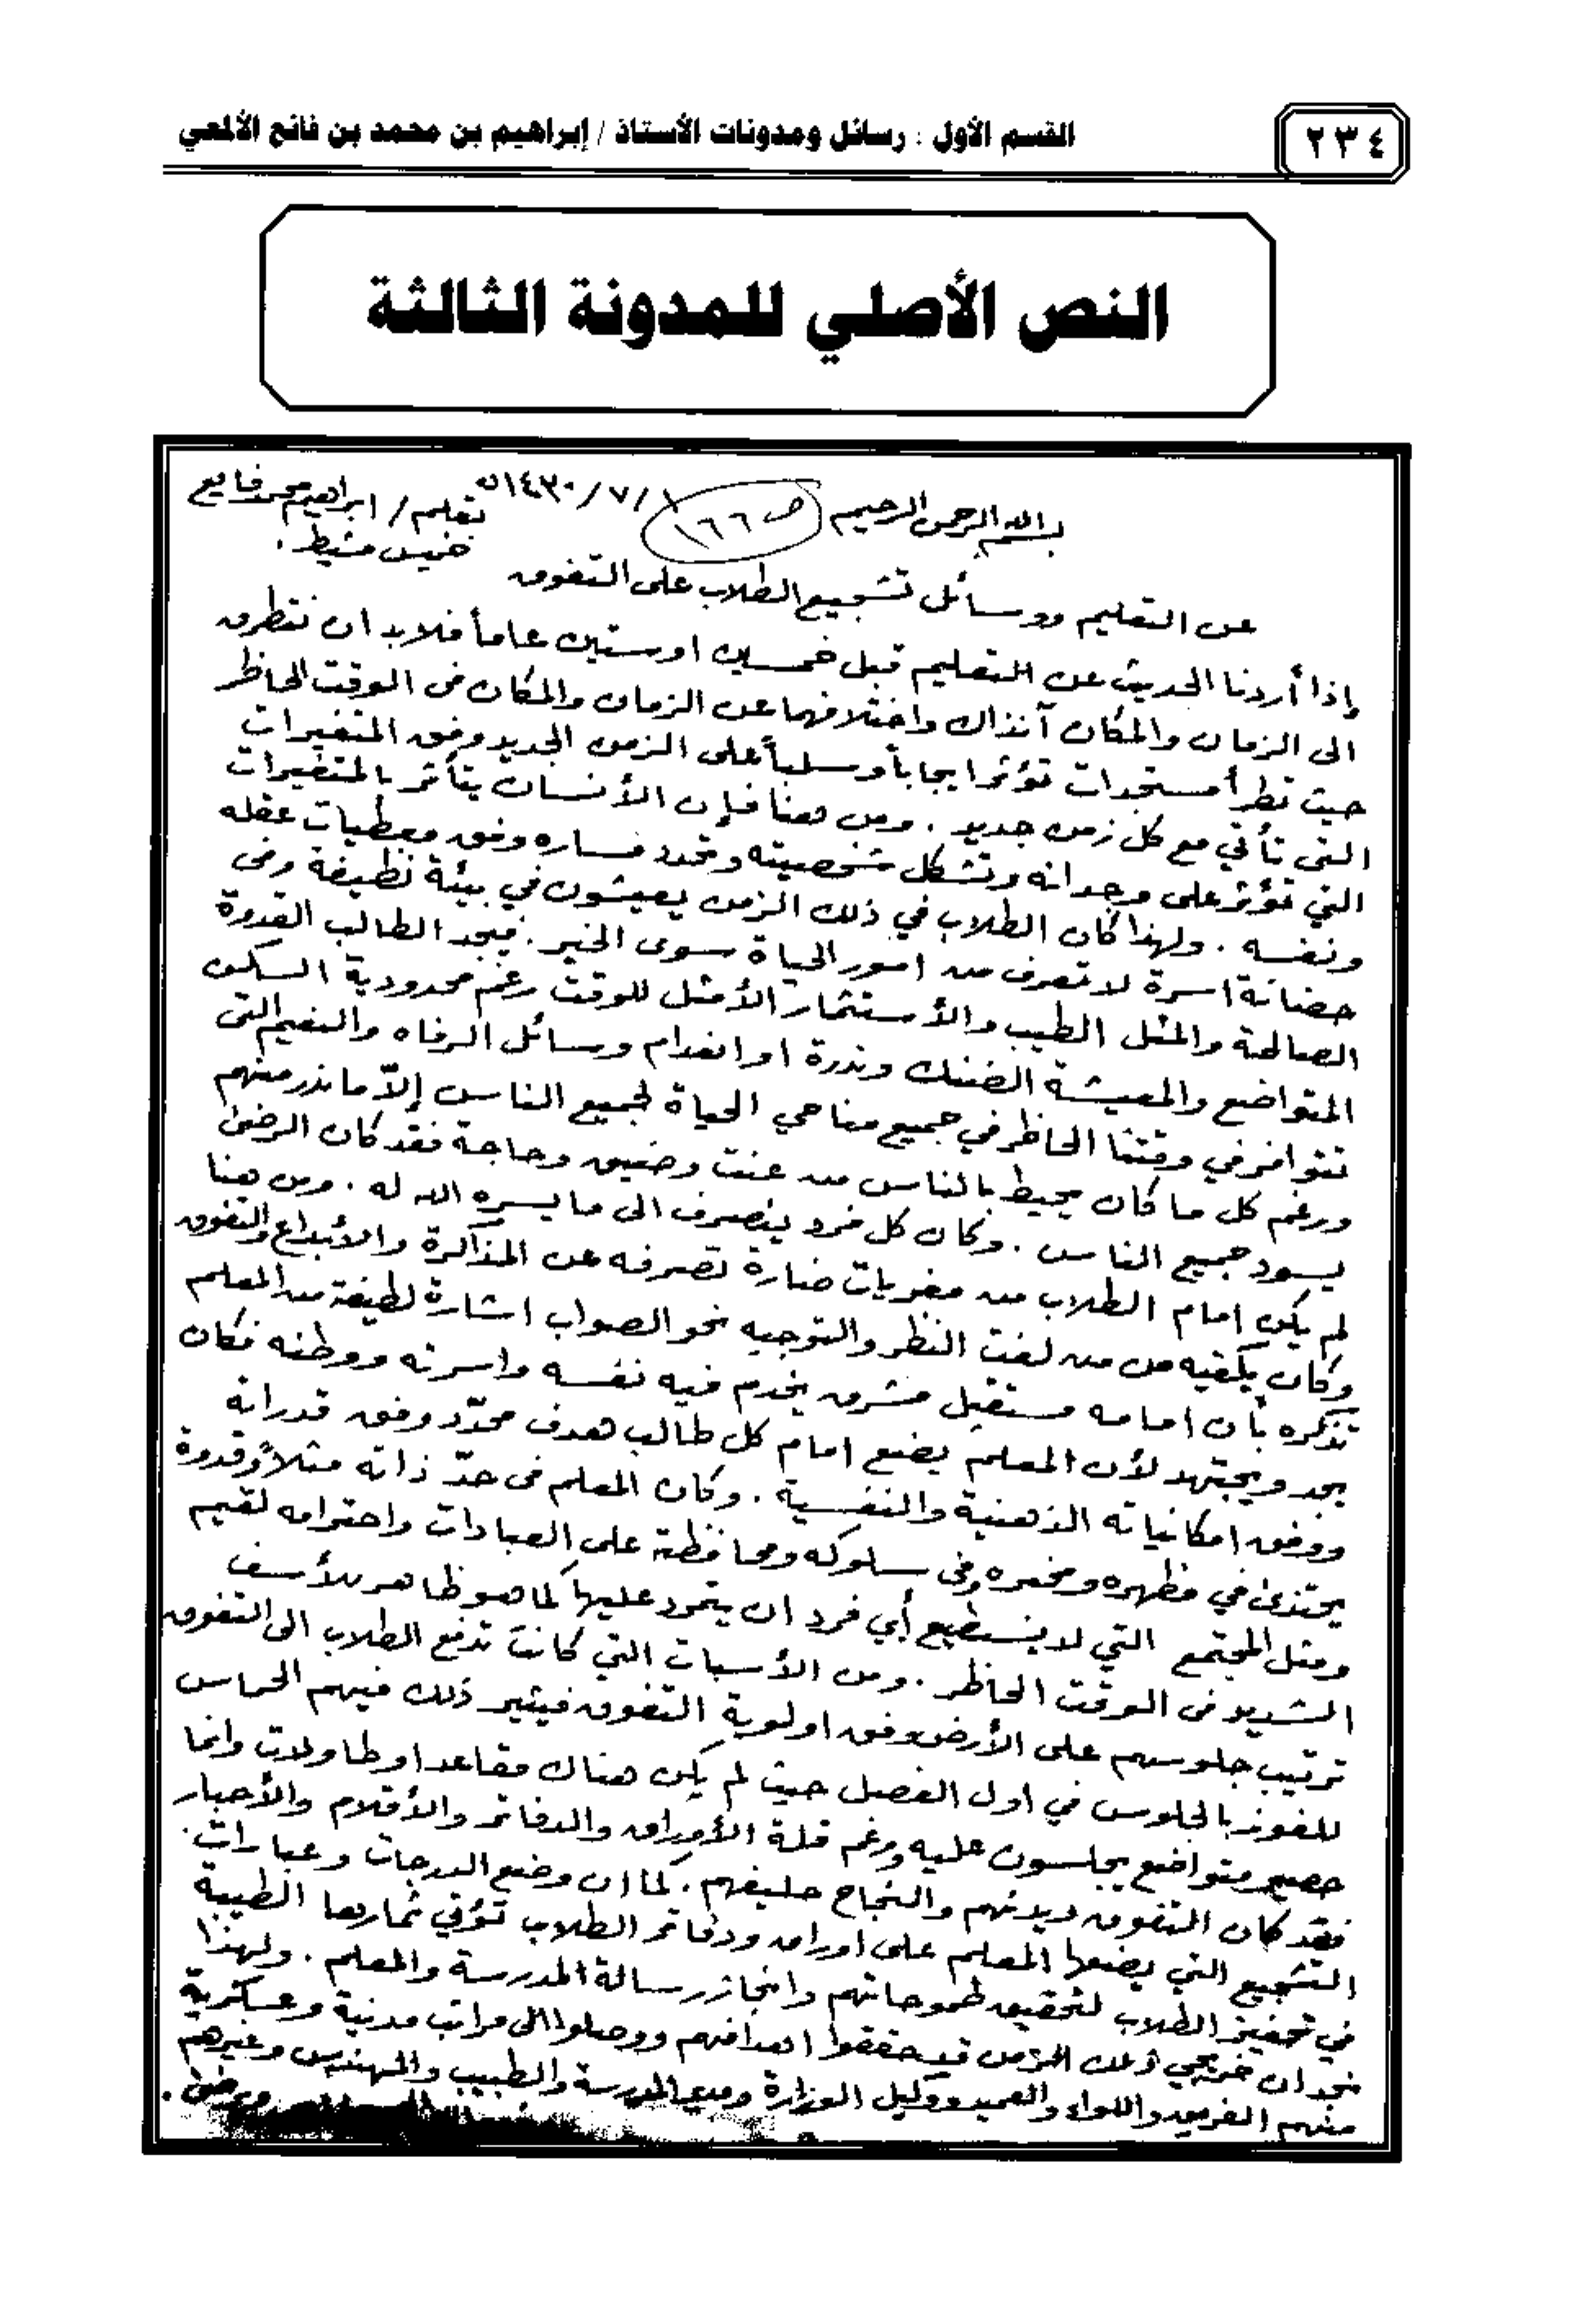 ٢٣٤
القسم الأول : رسائل ومدونات الأستاذ / إبراهيم بن محمد بن فائع الألمعي
النص الأصلي للمدونة الثالثة
بسم الله الرحمن الرحيم ص ١٦٦ ١٤٣٠/٧/١هـ
بقلم / ابراهيم محمد فايع
خميس مشيط .
عن التعليم ووسائل تشجيع الطلاب على التفوق
وإذا أردنا الحديث عن التعليم قبل خمسين او ستين عاماً فلابد ان نتطرق
الى الزمان والمكان آنذاك واختلافهما عن الزمان والمكان في الوقت الحاظر
حيث تطرأ مستجدات تؤثر ايجاباً وسلباً على الزمن الجديد وفق المتغيرات
التي تأتي مع كل زمن جديد . ومن هنا فإن الأنسان يتأثر بالمتغيرات
التي تؤثر على وجدانه وتشكل شخصيته وتحدد مساره وفق معطيات عقله
ونفسه . ولهذا كان الطلاب في ذلك الزمن يعيشون في بيئة نظيفة وفي
حضانة اسرة لا تعرف من امور الحياة سوى الخير . فيجد الطالب القدوة
الصالحة والمثل الطيب والأستثمار الأمثل للوقت رغم محدودية السكن
المتواضع والمعيشة الضنك وندرة او انعدام وسائل الرفاه والنعيم التي
تتوافر في وقتنا الحاظر في جميع مناحي الحياة لجميع الناس إلاّ ما ندر منهم
ورغم كل ما كان يحيط بالناس من عنت وضيق وحاجة فقد كان الرضى
يسود جميع الناس . وكان كل فرد ينصرف الى ما يسره الله له . ومن هنا
لم يكن امام الطلاب من مغريات ضارة تصرفه عن المذاكرة والأبداع والتفوق
وكان يكفيه من لفت النظر والتوجيه نحو الصواب اشارة لطيفة من المعلم
تذكره بأن امامه مستقبل مشرق يخدم فيه نفسه واسرته ووطنه فكان
يجد ويجتهد لأن المعلم يضع امام كل طالب هدف محدّد وفق قدراته
ووفق امكانياته الذهنية والنفسية . وكان المعلم في حدّ ذاته مثلاً وقدوة
يحتذى في مظهره ومخبره وفي سلوكه ومحافظة على العبادات واحترامه لقيم
ومثل المجتمع التي لا يستطيع أي فرد ان يتمرد عليها كما هو ظاهر للأسف
الشديد في الوقت الحاظر . ومن الأسباب التي كانت تدفع الطلاب الى التفوق
ترتيب جلوسهم على الأرض وفق اولوية التفوق فيثير ذلك فيهم الحماس
للفوز بالجلوس في اول الفصل حيث لم يكن هناك مقاعد او طاولات وانما
حصير متواضع يجلسون عليه ورغم قلة الأوراق والدفاتر والأقلام والأحبار
فقد كان التفوق ديدنهم والنجاح حليفهم . كما ان وضع الدرجات وعبارات
التشجيع التي يضعها المعلم على اوراق ودفاتر الطلاب تؤتي ثمارها الطيبة
في تحفيز الطلاب لتحقيق طموحاتهم وانجاز رسالة المدرسة والمعلم . ولهذا
نجد ان خريجي ذلك الزمن قد حققوا اهدافهم ووصلوا الى مراتب مدنية وعسكرية
منهم الفريق واللواء والعميد ووكيل الوزارة ومدير المدرسة والطبيب والمهندس وغيرهم